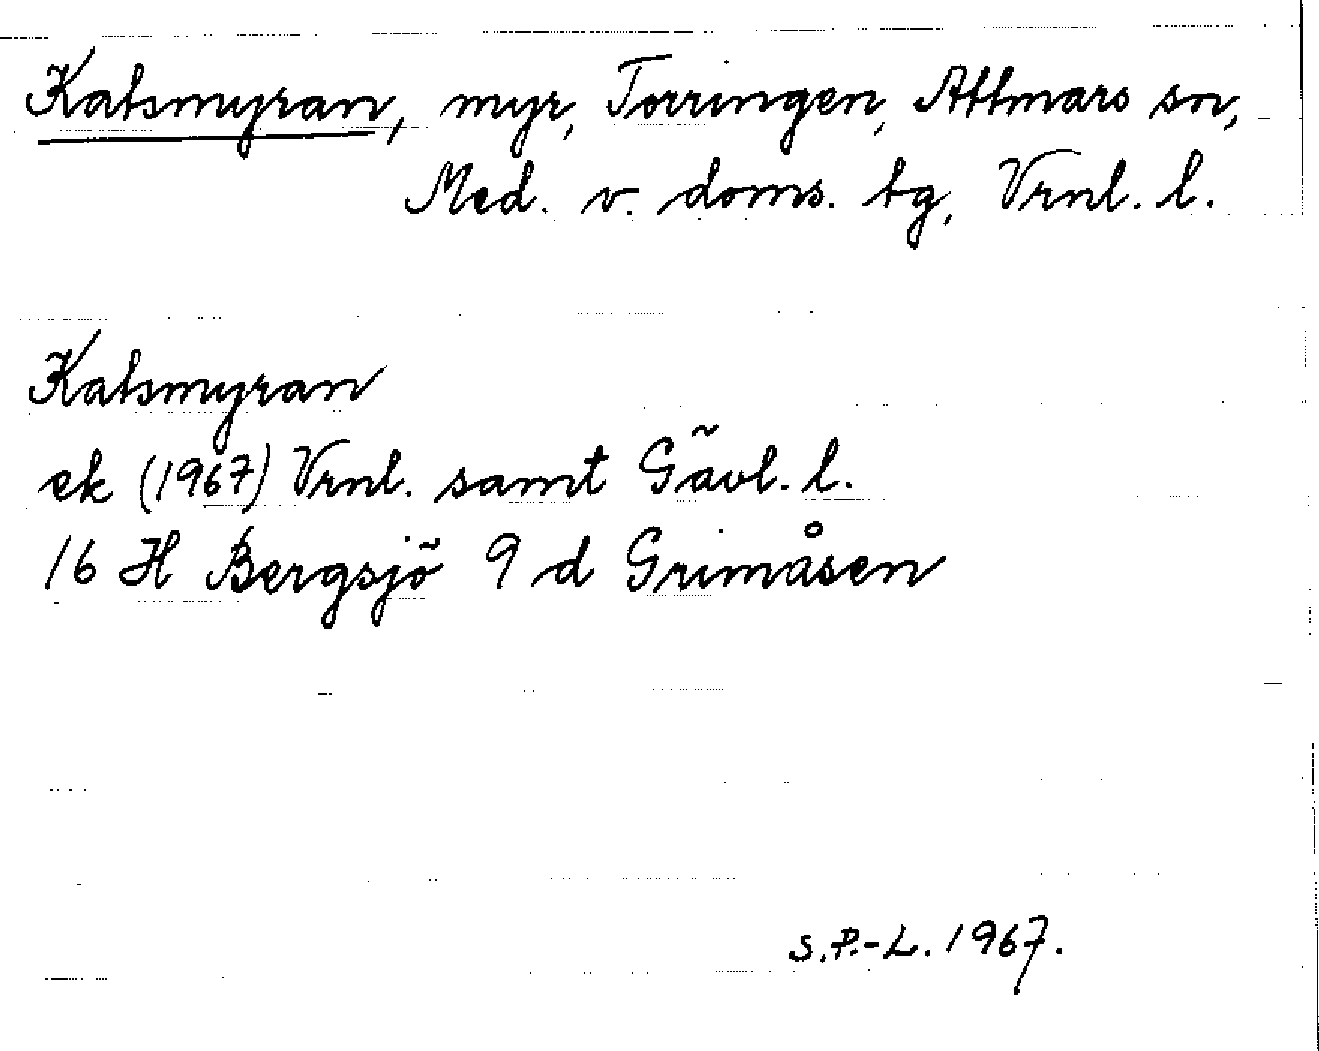 Katsmyran, myr, Torringen, Attmars sn,
Med. v. doms. tg, Vrnl. l.
Katsmyran
ek (1967) Vrnl. samt Gävl. l.
16 H Bergsjö 9 d Grimåsen
S.P.-L. 1967.